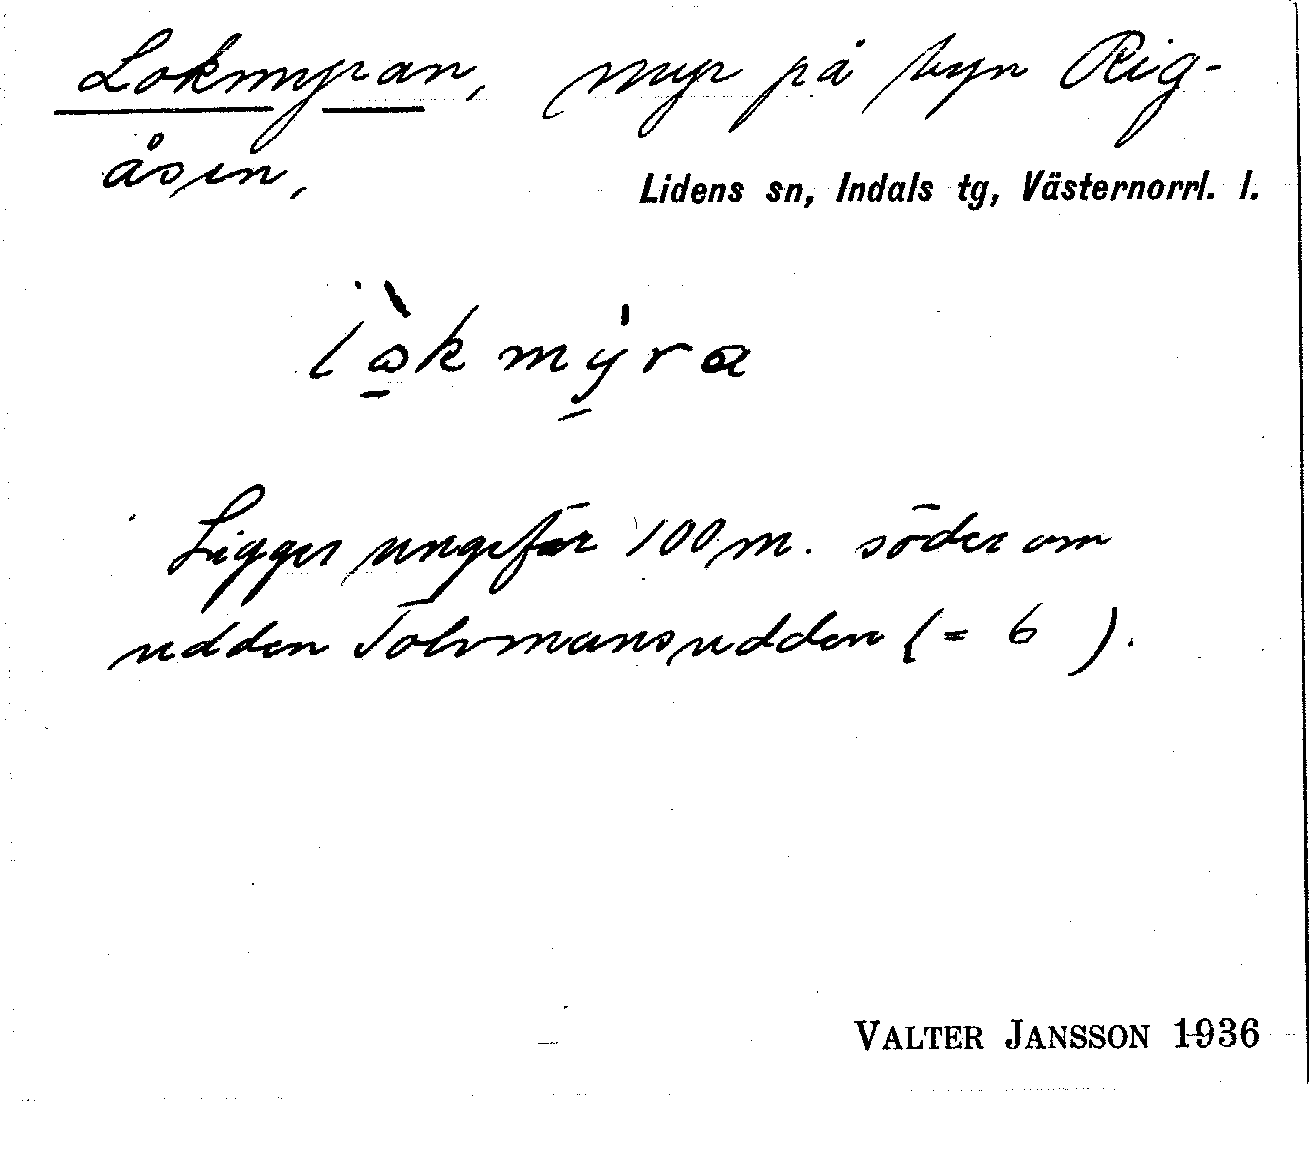 Lokmyran, myr på byn Rig-
åsen,
Lidens sn, Indals tg, Västernorrl. l.
Ligger ungefär 100 m. söder om
udden Tolvmansudden (= 6 ).
VALTER JANSSON 1936